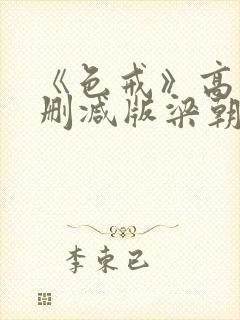 《色戒》高
删减版梁朝
李束已